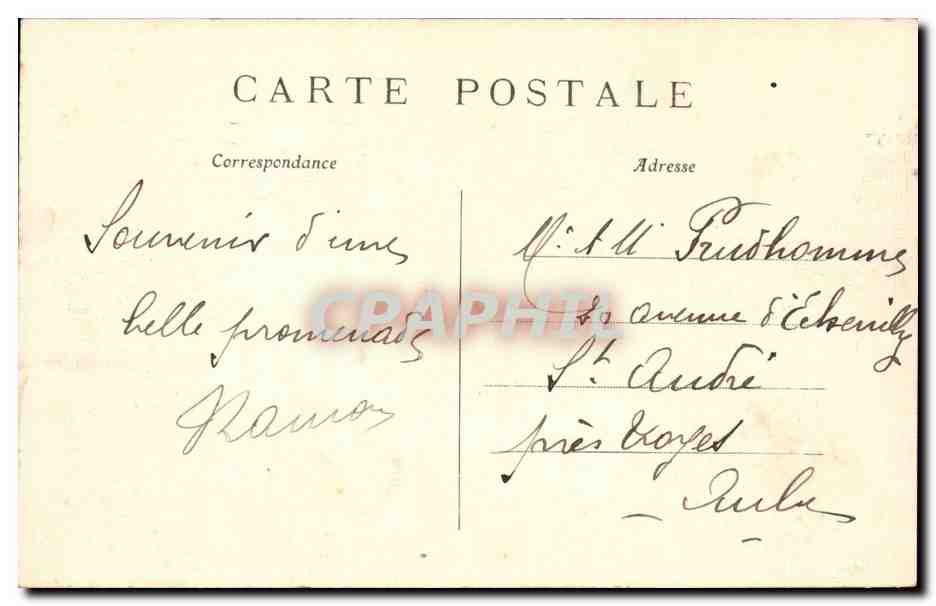 CARTE POSTALE
Correspondance
Souvenir d'une
belle promenade
Ramon
Adresse
Prudhomme
20 avenue d'Echenilly
St. André
près Troyes
Aube
CPAPHIL